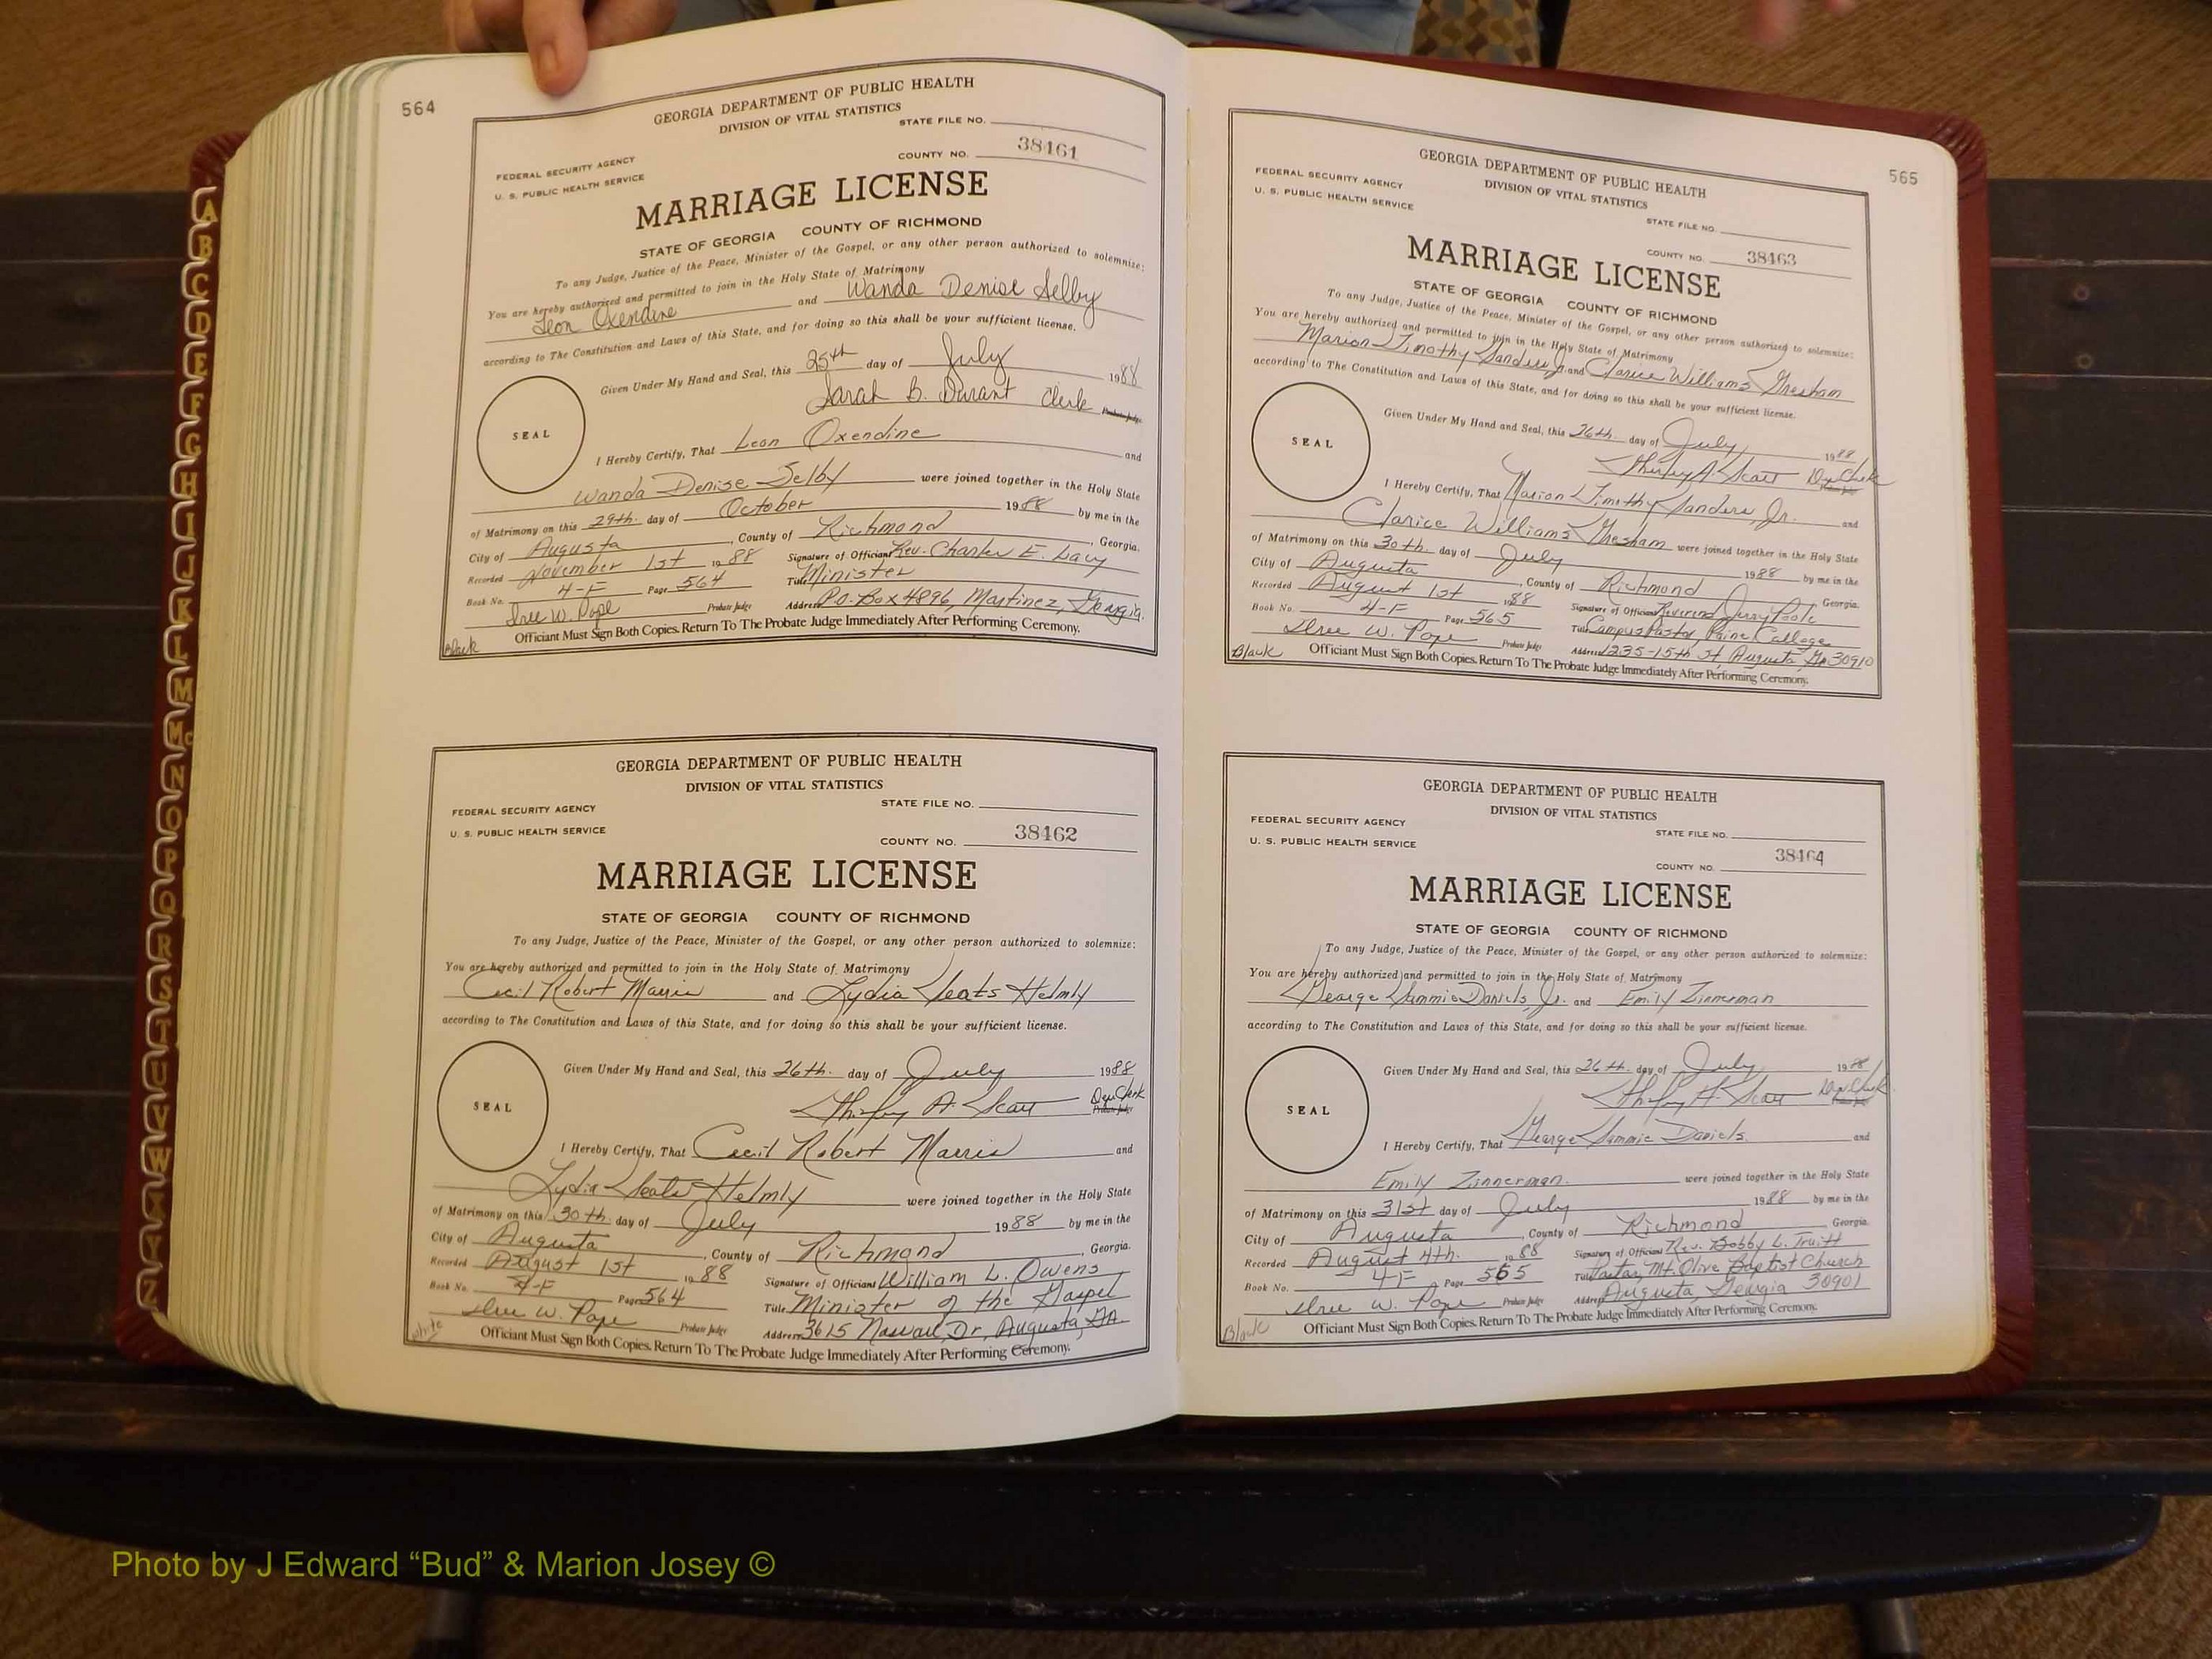 564
GEORGIA DEPARTMENT OF PUBLIC HEALTH
DIVISION OF VITAL STATISTICS
STATE FILE NO.
FEDERAL SECURITY AGENCY
U. S. PUBLIC HEALTH SERVICE
COUNTY NO. 38461
MARRIAGE LICENSE
STATE OF GEORGIA COUNTY OF RICHMOND
To any Judge, Justice of the Peace, Minister of the Gospel, or any other person authorized to solemnize:
You are hereby authorized and permitted to join in the Holy State of Matrimony
Leon Oxendine and Wanda Denise Selby
according to The Constitution and Laws of this State, and for doing so this shall be your sufficient license.
Given Under My Hand and Seal, this 25th day of July 1988
Sarah B. Durant Clerk Probate Judge
SEAL
I Hereby Certify, That Leon Oxendine and
Wanda Denise Selby were joined together in the Holy State
of Matrimony on this 29th. day of October 1988 by me in the
City of Augusta, County of Richmond, Georgia.
Recorded November 1st 1988 Signature of Officiant Rev. Charles E. Lacy
Book No. 4-F Page 564 Title Minister
Iree W. Pope Probate Judge Address P.O. Box 4896, Martinez, Georgia.
Black Officiant Must Sign Both Copies. Return To The Probate Judge Immediately After Performing Ceremony.
GEORGIA DEPARTMENT OF PUBLIC HEALTH
DIVISION OF VITAL STATISTICS
FEDERAL SECURITY AGENCY STATE FILE NO.
U. S. PUBLIC HEALTH SERVICE COUNTY NO. 38462
MARRIAGE LICENSE
STATE OF GEORGIA COUNTY OF RICHMOND
To any Judge, Justice of the Peace, Minister of the Gospel, or any other person authorized to solemnize:
You are hereby authorized and permitted to join in the Holy State of Matrimony
Cecil Robert Morris and Lydia Seats Helmly
according to The Constitution and Laws of this State, and for doing so this shall be your sufficient license.
Given Under My Hand and Seal, this 26th. day of July 1988
Shirley A. Scott Dep. Clerk Probate Judge
SEAL
I Hereby Certify, That Cecil Robert Morris and
Lydia Seats Helmly were joined together in the Holy State
of Matrimony on this 30th. day of July 1988 by me in the
City of Augusta, County of Richmond, Georgia.
Recorded August 1st 1988 Signature of Officiant William L. Owens
Book No. 4-F Page 564 Title Minister of the Gospel
Iree W. Pope Probate Judge Address 3615 Nassau Dr, Augusta, GA.
White Officiant Must Sign Both Copies. Return To The Probate Judge Immediately After Performing Ceremony.
565
GEORGIA DEPARTMENT OF PUBLIC HEALTH
DIVISION OF VITAL STATISTICS
FEDERAL SECURITY AGENCY
U. S. PUBLIC HEALTH SERVICE
STATE FILE NO.
COUNTY NO. 38463
MARRIAGE LICENSE
STATE OF GEORGIA COUNTY OF RICHMOND
To any Judge, Justice of the Peace, Minister of the Gospel, or any other person authorized to solemnize:
You are hereby authorized and permitted to join in the Holy State of Matrimony
Marion Timothy Sanders, Jr and Clarice Williams Gresham
according to The Constitution and Laws of this State, and for doing so this shall be your sufficient license.
Given Under My Hand and Seal, this 26th. day of July, 1988
Shirley A. Scott Dep. Clerk
SEAL
I Hereby Certify, That Marion Timothy Sanders, Jr. and
Clarice Williams Gresham were joined together in the Holy State
of Matrimony on this 30th. day of July 1988 by me in the
City of Augusta, County of Richmond Georgia.
Recorded August 1st 1988 Signature of Officiant Reverend Jerry Poole
Book No. 4-F Page 565 Title Campus Pastor, Paine College
Iree W. Pope Probate Judge Address 1235-15th St, Augusta, Ga 30910
Black Officiant Must Sign Both Copies. Return To The Probate Judge Immediately After Performing Ceremony.
GEORGIA DEPARTMENT OF PUBLIC HEALTH
DIVISION OF VITAL STATISTICS
FEDERAL SECURITY AGENCY STATE FILE NO.
U. S. PUBLIC HEALTH SERVICE
COUNTY NO. 38464
MARRIAGE LICENSE
STATE OF GEORGIA COUNTY OF RICHMOND
To any Judge, Justice of the Peace, Minister of the Gospel, or any other person authorized to solemnize:
You are hereby authorized and permitted to join in the Holy State of Matrimony
George Sammie Daniels, Jr. and Emily Zinnerman
according to The Constitution and Laws of this State, and for doing so this shall be your sufficient license.
Given Under My Hand and Seal, this 26th. day of July 1988
Shirley A. Scott Dep. Clerk
SEAL
I Hereby Certify, That George Sammie Daniels. and
Emily Zinnerman. were joined together in the Holy State
of Matrimony on this 31st day of July 1988 by me in the
City of Augusta, County of Richmond, Georgia.
Recorded August 4th. 1988 Signature of Officiant Rev. Bobby L. Truitt
Book No. 4F Page 565 Title Pastor, Mt. Olive Baptist Church
Iree W. Pope Probate Judge Address Augusta, Georgia 30901
Black Officiant Must Sign Both Copies. Return To The Probate Judge Immediately After Performing Ceremony.
A
B
C
D
E
F
G
H
I
J
K
L
M
Mc
N
O
P
Q
R
S
T
U
V
W
X
Y
Z
Photo by J Edward “Bud” & Marion Josey ©